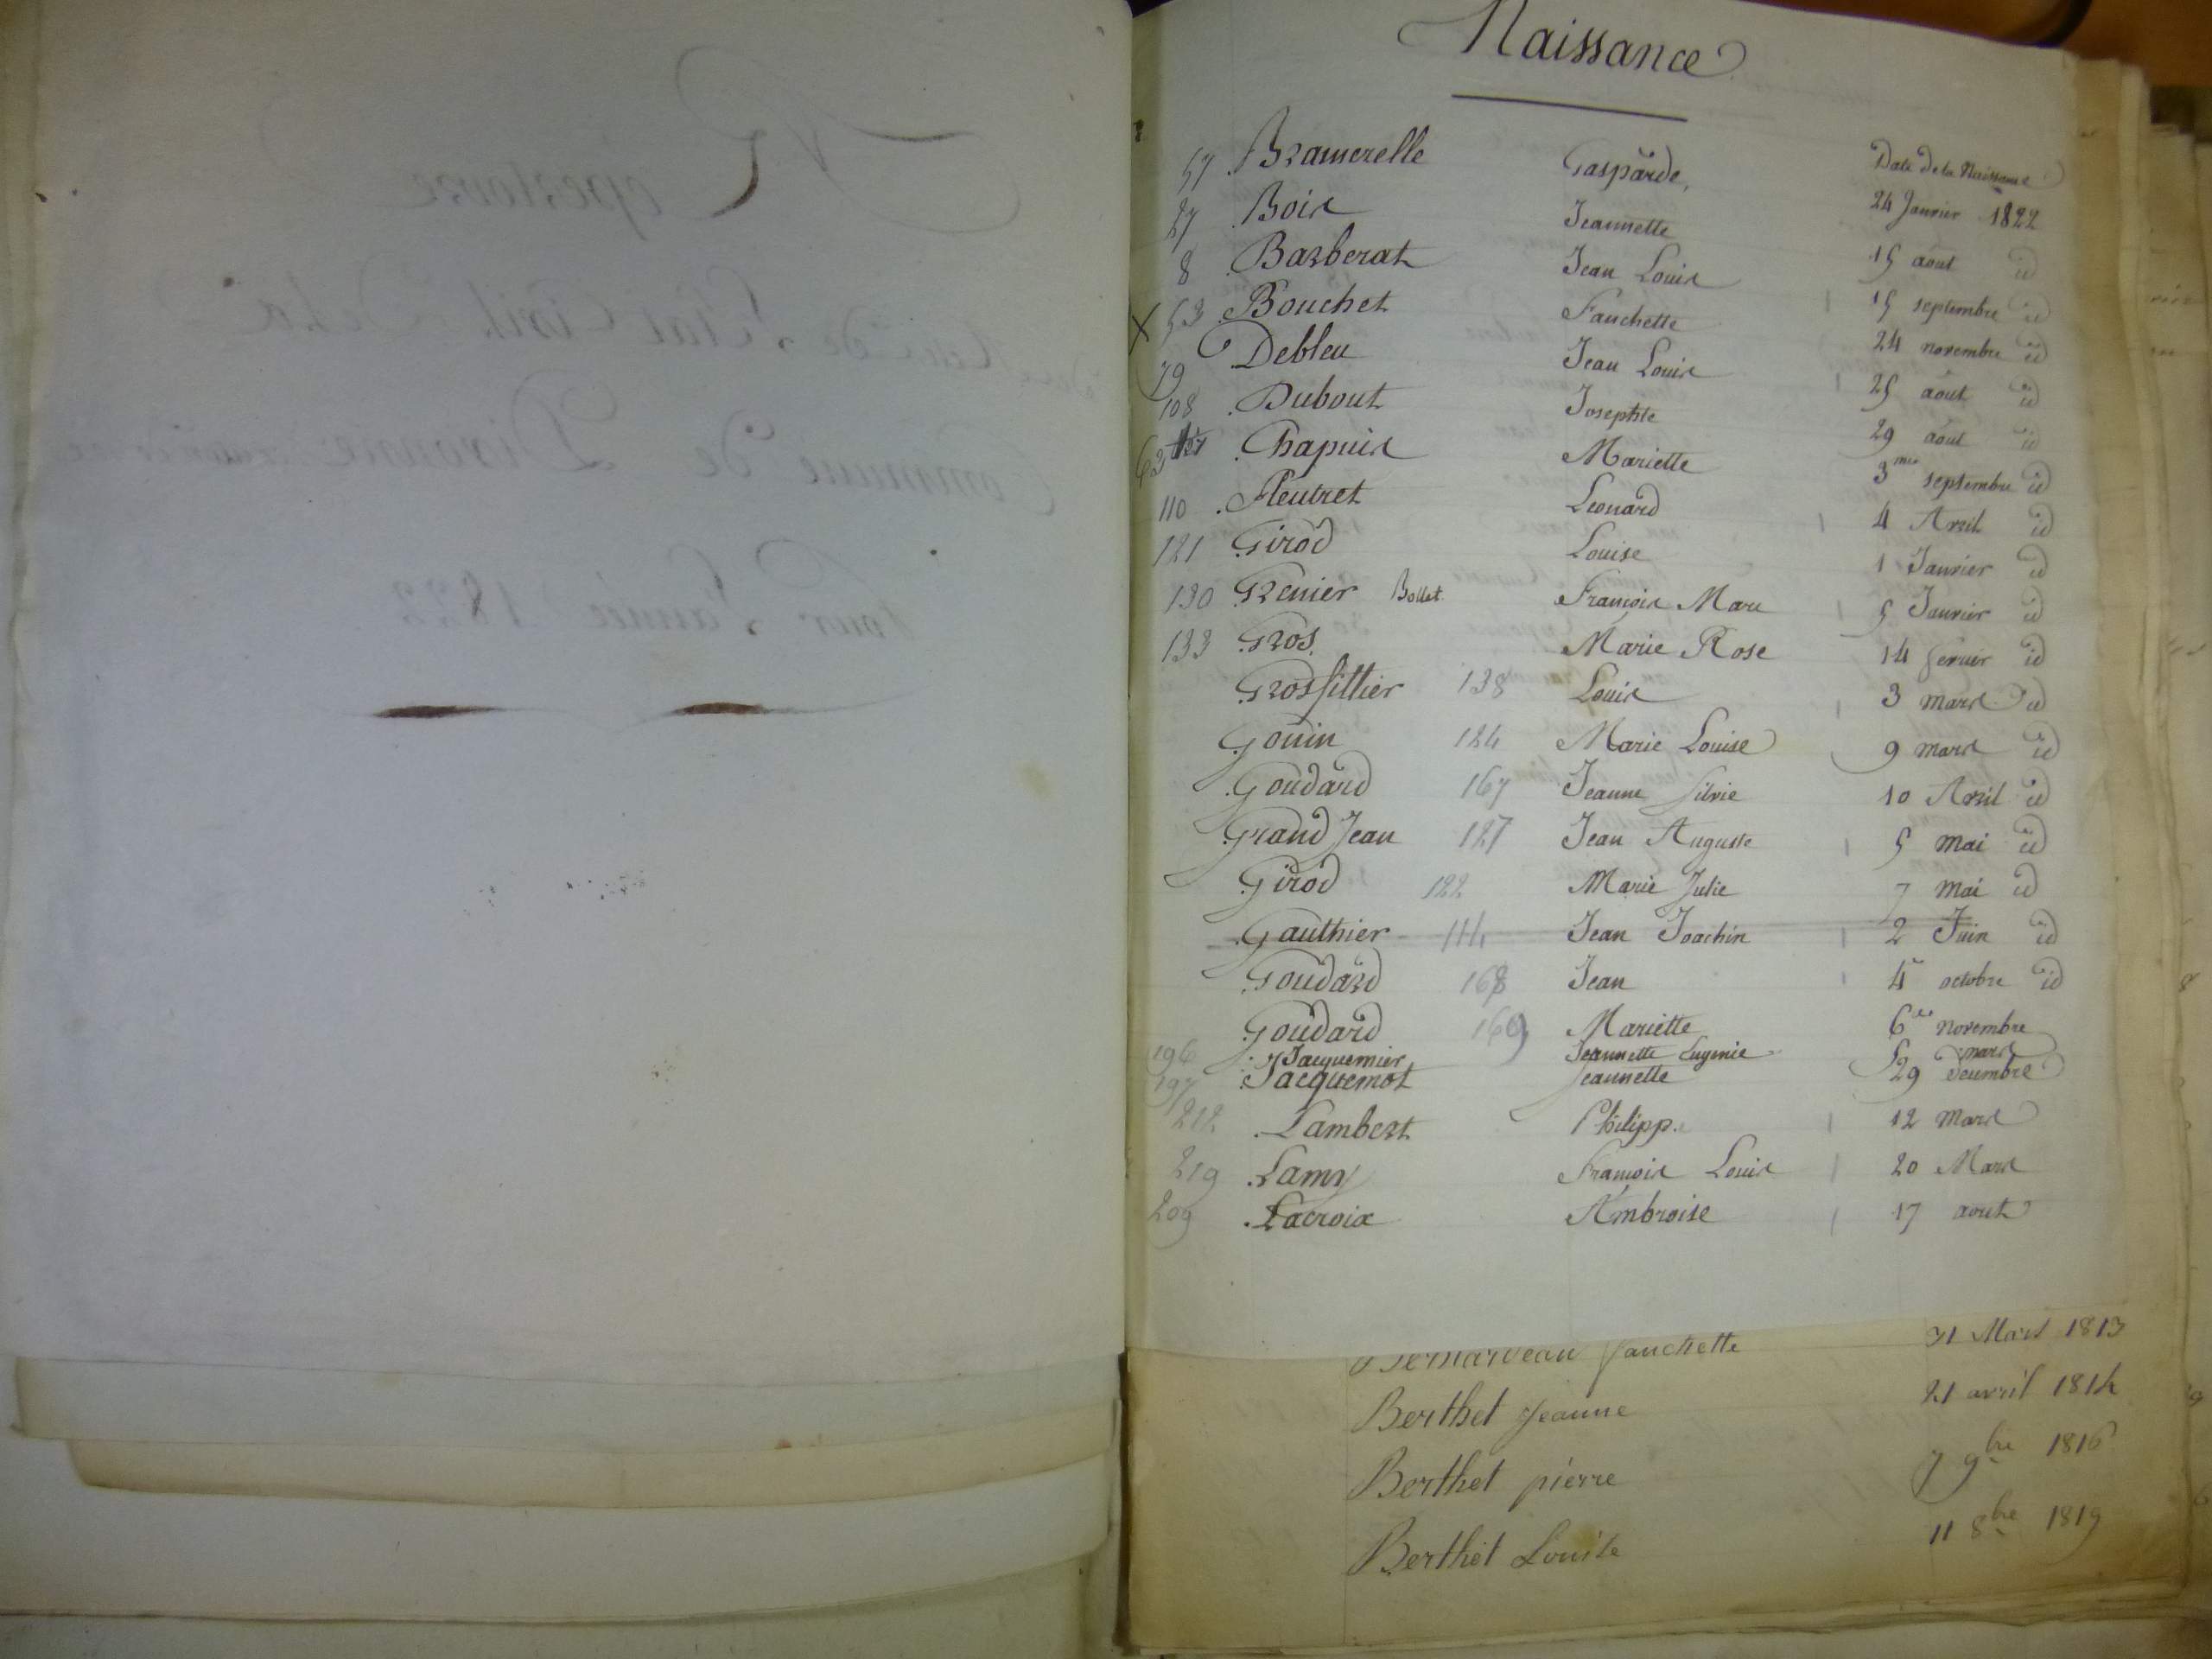 Naissance
Date de la Naissance
57 Bramerelle Gasparde, 24 Janvier 1822
27 Bois Jeannette 15 aout id
8 Barberat Jean Louis 15 septembre id
X 53 Bouchet Fanchette 24 novembre id
79 Debleu Jean Louis 25 aout id
108 Dubout Josephte 29 aout id
63 Chapuis Mariette 3me septembre id
110 Fleutret Leonard 4 Avril id
121 Girod Louise 1 Janvier id
130 Grenier Bollet François Marc 5 Janvier id
133 Gros. Marie Rose 14 fevrier id
Grosfillier 138 Louis 3 mars id
Gouin 124 Marie Louise 9 mars id
Goudard 167 Jeanne Silvie 10 Avril id
Grand Jean 127 Jean Auguste 5 mai id
Girod 122 Marie Julie 7 mai id
Gauthier 114 Jean Joachin 2 Juin id
Goudard 168 Jean 4 octobre id
Goudard 169 Mariette 6 novembre
196 Jacquemier Jeannette Eugenie 5 mars
197 Jacquemot Jeannette 29 decembre
212 Lambert Philipp. 12 Mars
219 Lamy François Louis 20 Mars
209 Lacroix Ambroise 17 aout
Fanchette 31 Mars 1813
Berthet Jeanne 21 avril 1814
Berthet pierre 7 9bre 1816
Berthet Louise 11 8bre 1819